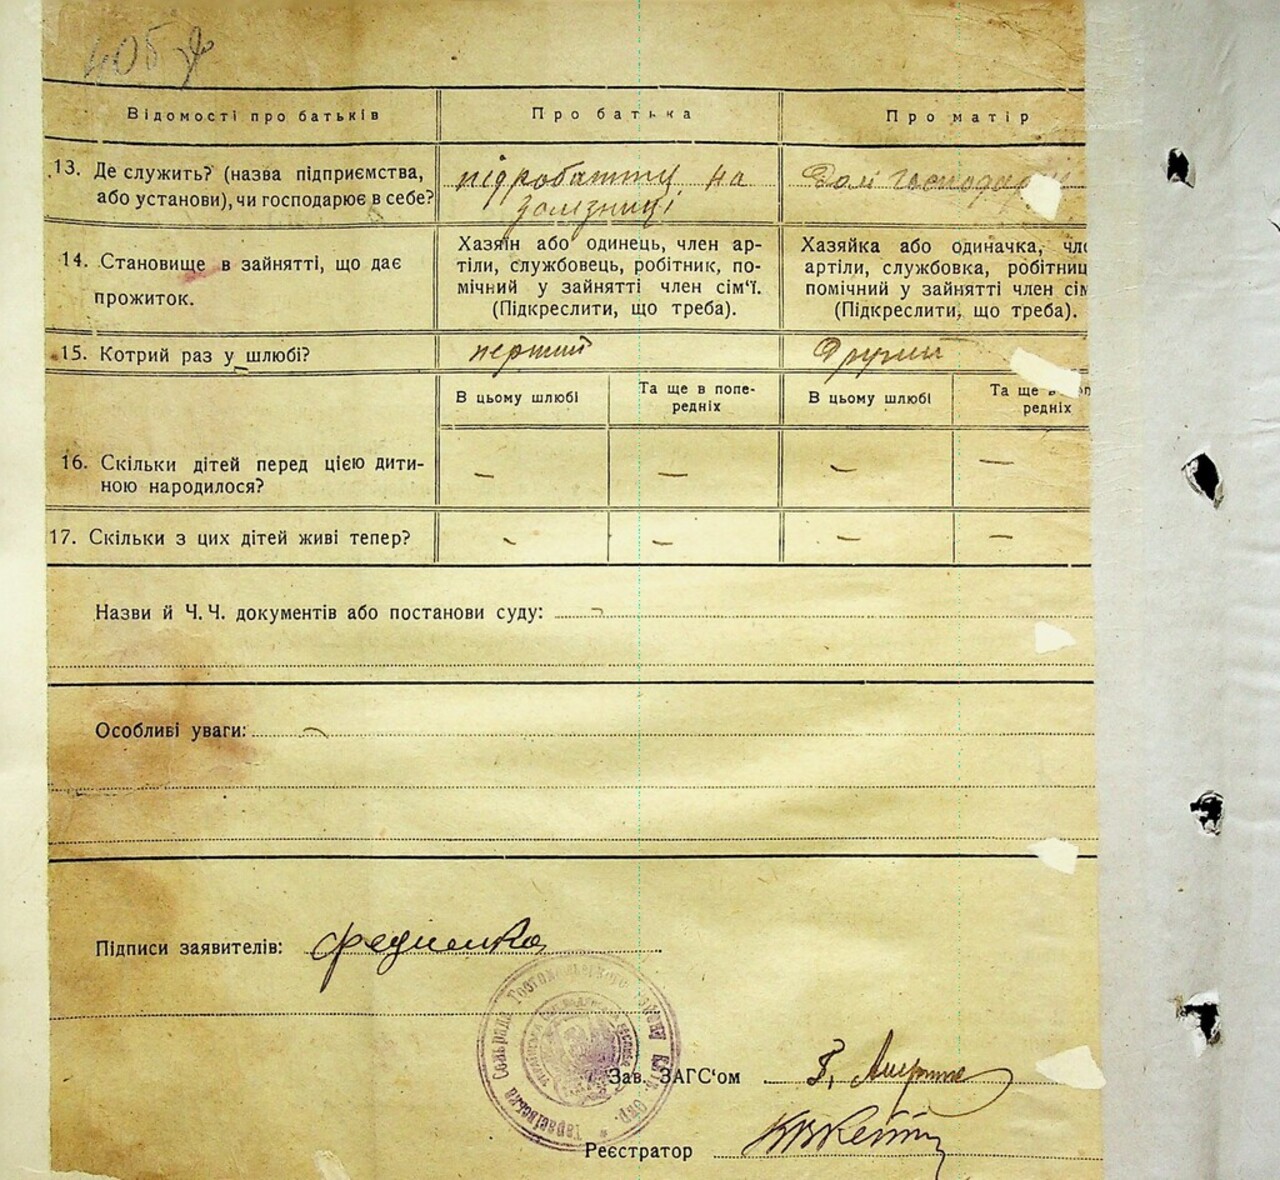 405
Відомості про батьків
Про батька
Про матір
13. Де служить? (назва підприємства,
або установи), чи господарює в себе?
підробатту на
залізниці
Долі господар
14. Становище в зайнятті, що дає
прожиток.
Хазяїн або одинець, член ар-
тіли, службовець, робітник, по-
мічний у зайнятті член сім'ї.
(Підкреслити, що треба).
Хазяйка або одиначка, чле
артіли, службовка, робітниц
помічний у зайнятті член сім
(Підкреслити, що треба).
15. Котрий раз у шлюбі?
перший
Другий
В цьому шлюбі
Та ще в попе-
редніх
В цьому шлюбі
Та ще в поп
редніх
16. Скільки дітей перед цією дити-
ною народилося?
— — — —
17. Скільки з цих дітей живі тепер?
— — — —
Назви й Ч. Ч. документів або постанови суду: —
Особливі уваги: —
Підписи заявителів: Федченко
Тарасівська Сільрада
Зав. ЗАГС'ом
Реєстратор